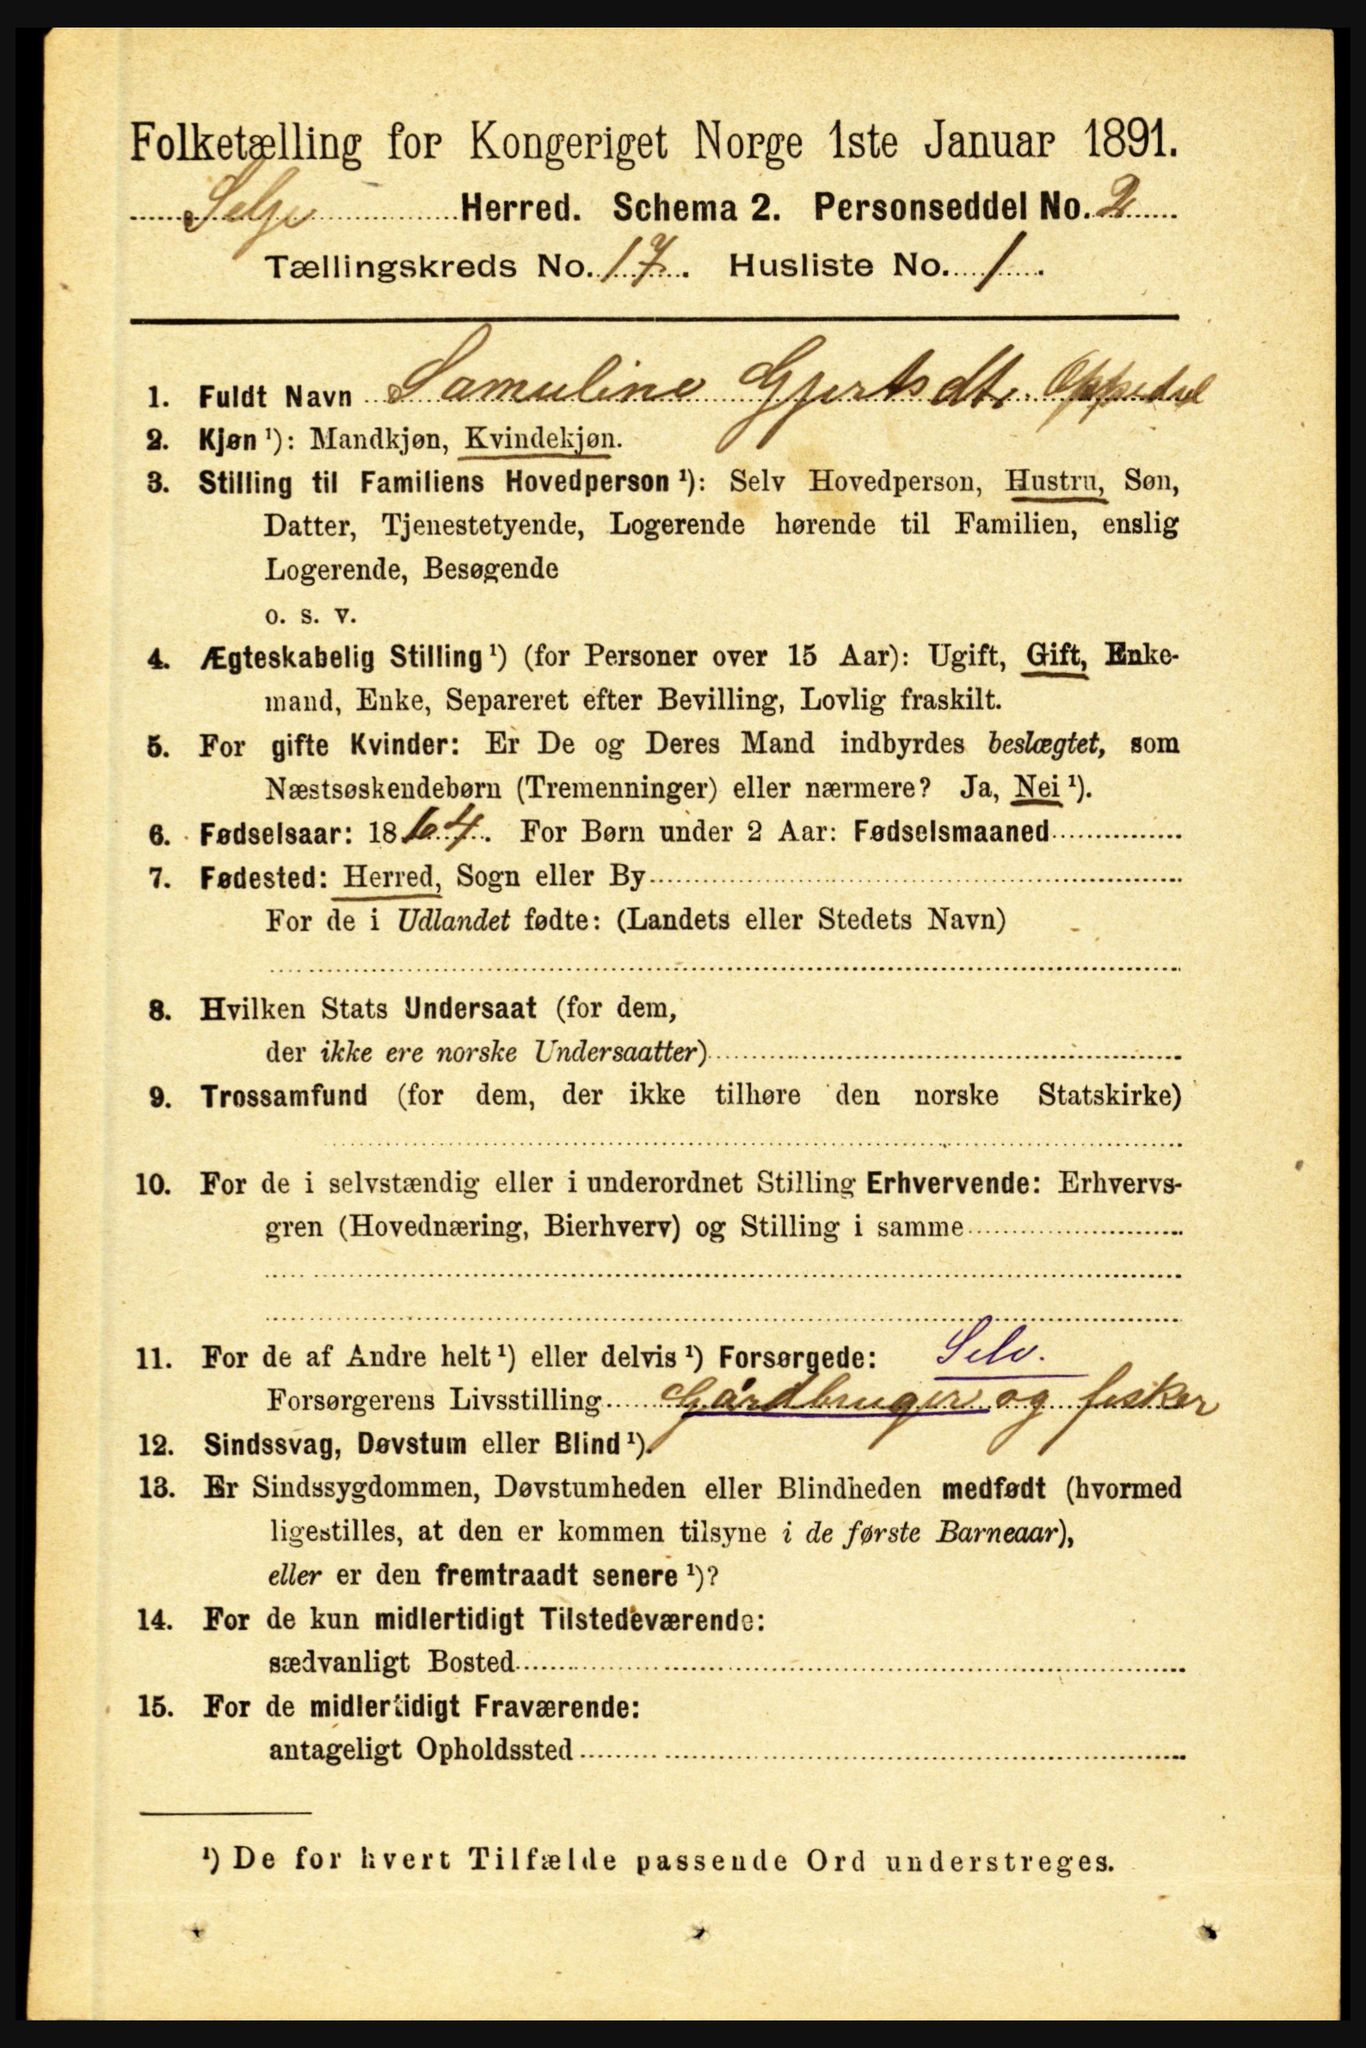 Folketælling for Kongeriget Norge 1ste Januar 1891.
Selje Herred. Schema 2. Personseddel No. 2
Tællingskreds No. 17. Husliste No. 1.
1. Fuldt Navn Samuline Gjertsdtr. Oppedal
2. Kjøn¹): Mandkjøn, Kvindekjøn.
3. Stilling til Familiens Hovedperson¹): Selv Hovedperson, Hustru, Søn,
Datter, Tjenestetyende, Logerende hørende til Familien, enslig
Logerende, Besøgende
o. s. v.
4. Ægteskabelig Stilling¹) (for Personer over 15 Aar): Ugift, Gift, Enke-
mand, Enke, Separeret efter Bevilling, Lovlig fraskilt.
5. For gifte Kvinder: Er De og Deres Mand indbyrdes beslægtet, som
Næstsøskendebørn (Tremenninger) eller nærmere? Ja, Nei¹).
6. Fødselsaar: 1864. For Børn under 2 Aar: Fødselsmaaned
7. Fødested: Herred, Sogn eller By
For de i Udlandet fødte: (Landets eller Stedets Navn)
8. Hvilken Stats Undersaat (for dem,
der ikke ere norske Undersaatter)
9. Trossamfund (for dem, der ikke tilhøre den norske Statskirke)
10. For de i selvstændig eller i underordnet Stilling Erhvervende: Erhvervs-
gren (Hovednæring, Bierhverv) og Stilling i samme
11. For de af Andre helt¹) eller delvis¹) Forsørgede: Selv.
Forsørgerens Livsstilling Gårdbruger og fisker
12. Sindssvag, Døvstum eller Blind¹).
13. Er Sindssygdommen, Døvstumheden eller Blindheden medfødt (hvormed
ligestilles, at den er kommen tilsyne i de første Barneaar),
eller er den fremtraadt senere¹)?
14. For de kun midlertidigt Tilstedeværende:
sædvanligt Bosted
15. For de midlertidigt Fraværende:
antageligt Opholdssted
¹) De for hvert Tilfælde passende Ord understreges.